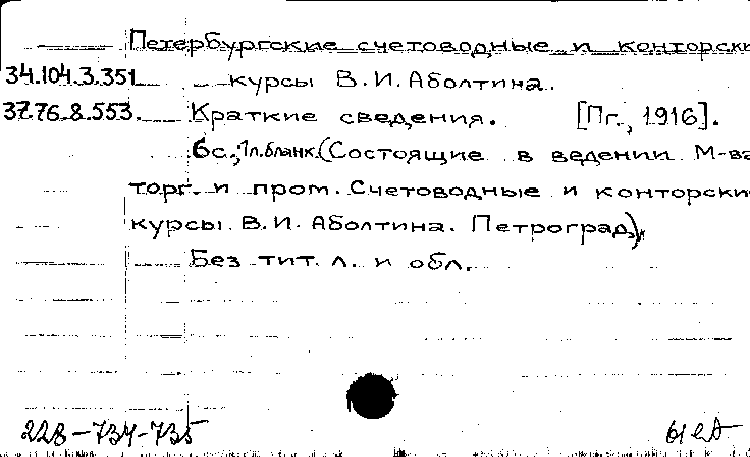 Петербургские счетоводные и конторски
34.104.3.351 курсы В.И.Аболтина.
37.76.8.553. Краткие сведения. [Пг., 1916].
6с., 1л.бланк. (Состоящие в ведении М-ва
торг. и пром. Счетоводные и конторски
курсы В.И. Аболтина. Петроград.)
Без тит. л. и обл.
228-734-735